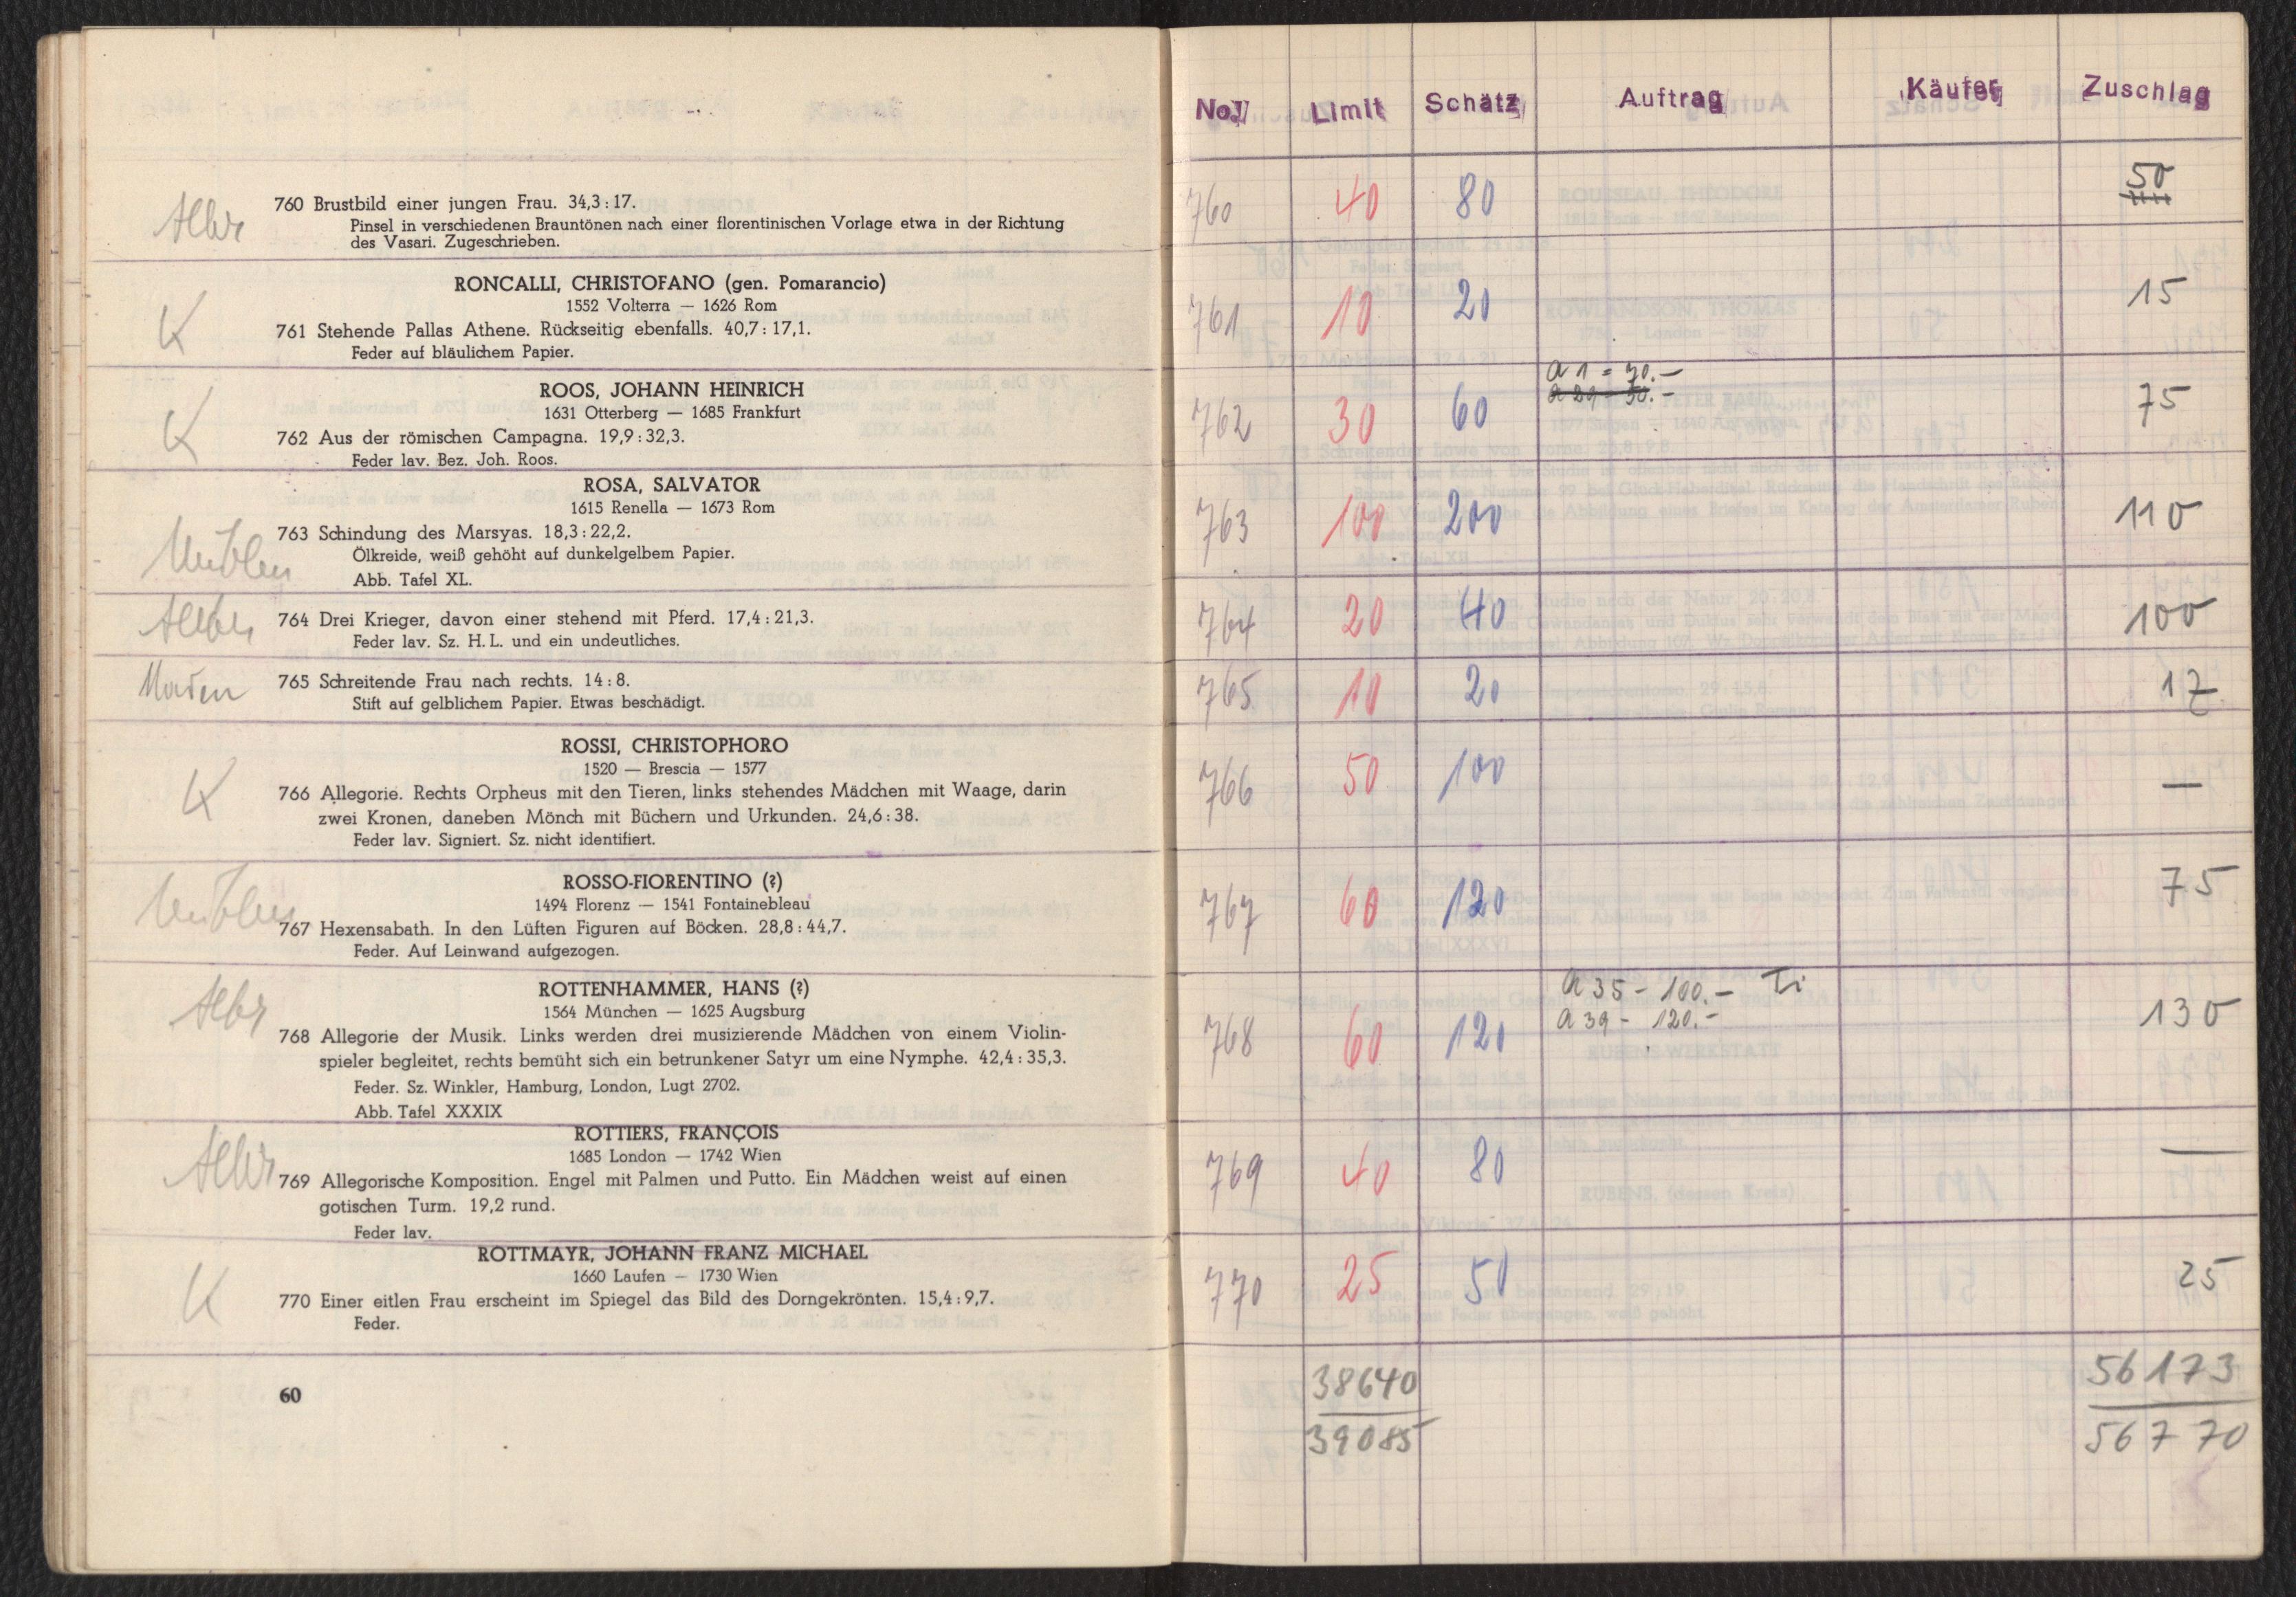 760 Brustbild einer jungen Frau. 34,3 : 17.
Pinsel in verschiedenen Brauntönen nach einer florentinischen Vorlage etwa in der Richtung
des Vasari. Zugeschrieben.
K
RONCALLI, CHRISTOFANO (gen. Pomarancio)
1552 Volterra — 1626 Rom
761 Stehende Pallas Athene. Rückseitig ebenfalls. 40,7 : 17,1.
Feder auf bläulichem Papier.
K
ROOS, JOHANN HEINRICH
1631 Otterberg — 1685 Frankfurt
762 Aus der römischen Campagna. 19,9 : 32,3.
Feder lav. Bez. Joh. Roos.
ROSA, SALVATOR
1615 Renella — 1673 Rom
763 Schindung des Marsyas. 18,3 : 22,2.
Ölkreide, weiß gehöht auf dunkelgelbem Papier.
Abb. Tafel XL.
764 Drei Krieger, davon einer stehend mit Pferd. 17,4 : 21,3.
Feder lav. Sz. H. L. und ein undeutliches.
765 Schreitende Frau nach rechts. 14 : 8.
Stift auf gelblichem Papier. Etwas beschädigt.
K
ROSSI, CHRISTOPHORO
1520 — Brescia — 1577
766 Allegorie. Rechts Orpheus mit den Tieren, links stehendes Mädchen mit Waage, darin
zwei Kronen, daneben Mönch mit Büchern und Urkunden. 24,6 : 38.
Feder lav. Signiert. Sz. nicht identifiert.
ROSSO-FIORENTINO (?)
1494 Florenz — 1541 Fontainebleau
767 Hexensabath. In den Lüften Figuren auf Böcken. 28,8 : 44,7.
Feder. Auf Leinwand aufgezogen.
ROTTENHAMMER, HANS (?)
1564 München — 1625 Augsburg
768 Allegorie der Musik. Links werden drei musizierende Mädchen von einem Violin-
spieler begleitet, rechts bemüht sich ein betrunkener Satyr um eine Nymphe. 42,4 : 35,3.
Feder. Sz. Winkler, Hamburg, London, Lugt 2702.
Abb. Tafel XXXIX
ROTTIERS, FRANÇOIS
1685 London — 1742 Wien
769 Allegorische Komposition. Engel mit Palmen und Putto. Ein Mädchen weist auf einen
gotischen Turm. 19,2 rund.
Feder lav.
K
ROTTMAYR, JOHANN FRANZ MICHAEL
1660 Laufen — 1730 Wien
770 Einer eitlen Frau erscheint im Spiegel das Bild des Dorngekrönten. 15,4 : 9,7.
Feder.
60
No. Limit Schätz Auftrag Käufer Zuschlag
760 40 80 50
761 10 20 15
a 1 = 70.—
a 29 = 50.—
762 30 60 75
763 100 200 110
764 20 40 100
765 10 20 17
766 50 100 —
767 60 120 75
a 35 - 100.— Ti
a 39 - 120.—
768 60 120 130
769 40 80 —
770 25 50 25
38640 56173
39085 56770